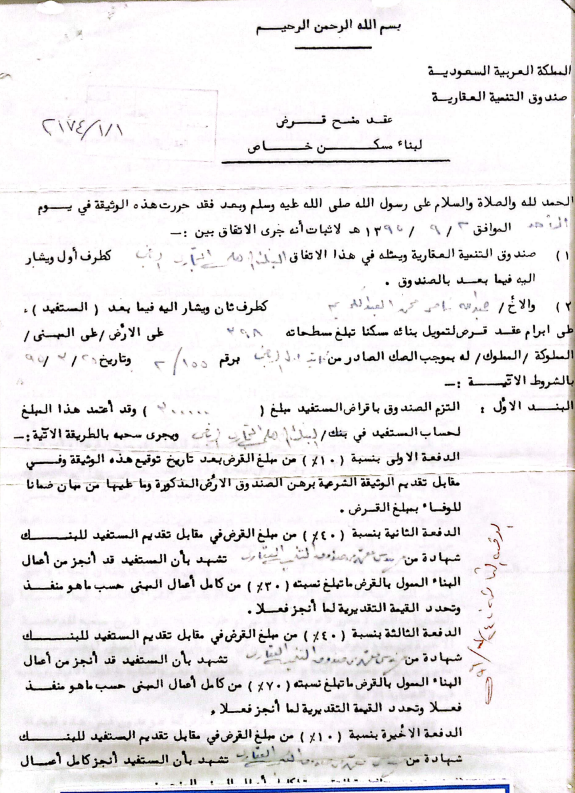 بسم الله الرحمن الرحيم
المملكة العربية السعودية
صندوق التنمية العقارية
عقد منح قرض
لبناء مسكن خاص
٢١٧٤/١/١
الحمد لله والصلاة والسلام على رسول الله صلى الله عليه وسلم وبعد فقد حررت هذه الوثيقة في يوم
الأحد الموافق ٢ / ٩ / ١٣٩٥ هـ لاثبات أنه جرى الاتفاق بين :ـ
١) صندوق التنمية العقارية ويمثله في هذا الاتفاق البنك كطرف أول ويشار
اليه فيما بعد بالصندوق .
٢) والأخ / كطرف ثان ويشار اليه فيما بعد ( المستفيد ) ،
على ابرام عقد قرض لتمويل بنائه سكنا تبلغ سطحاته ٣٩٨ على الأرض / على المبنى /
المملوكة / المملوك / له بموجب الصك الصادر من برقم ١٥٥ / ٢ وتاريخ
بالشروط الاتية :ـ
البند الأول : التزم الصندوق باقراض المستفيد مبلغ ( ٣٠٠٠٠٠ ) وقد أعتمد هذا المبلغ
لحساب المستفيد في بنك / ويجرى سحبه بالطريقة الاتية :ـ
الدفعة الاولى بنسبة ( ١٠٪ ) من مبلغ القرض بعد تاريخ توقيع هذه الوثيقة وفي
مقابل تقديم الوثيقة الشرعية برهن الصندوق الأرض المذكورة وما عليها من مبان ضمانا
للوفاء بمبلغ القرض .
الدفعة الثانية بنسبة ( ٤٠٪ ) من مبلغ القرض في مقابل تقديم المستفيد للبنك
شهادة من تشهد بأن المستفيد قد أنجز من أعمال
البناء الممول بالقرض ما تبلغ نسبته ( ٣٠٪ ) من كامل أعمال المبنى حسب ما هو منفذ
وتحدد القيمة التقديرية لما أنجز فعلا .
الدفعة الثالثة بنسبة ( ٤٠٪ ) من مبلغ القرض في مقابل تقديم المستفيد للبنك
شهادة من تشهد بأن المستفيد قد أنجز من أعمال
البناء الممول بالقرض ما تبلغ نسبته ( ٧٠٪ ) من كامل أعمال المبنى حسب ما هو منفذ
فعلا وتحدد القيمة التقديرية لما أنجز فعلا .
الدفعة الأخيرة بنسبة ( ١٠٪ ) من مبلغ القرض في مقابل تقديم المستفيد للبنك
شهادة من تشهد بأن المستفيد أنجز كامل أعمال